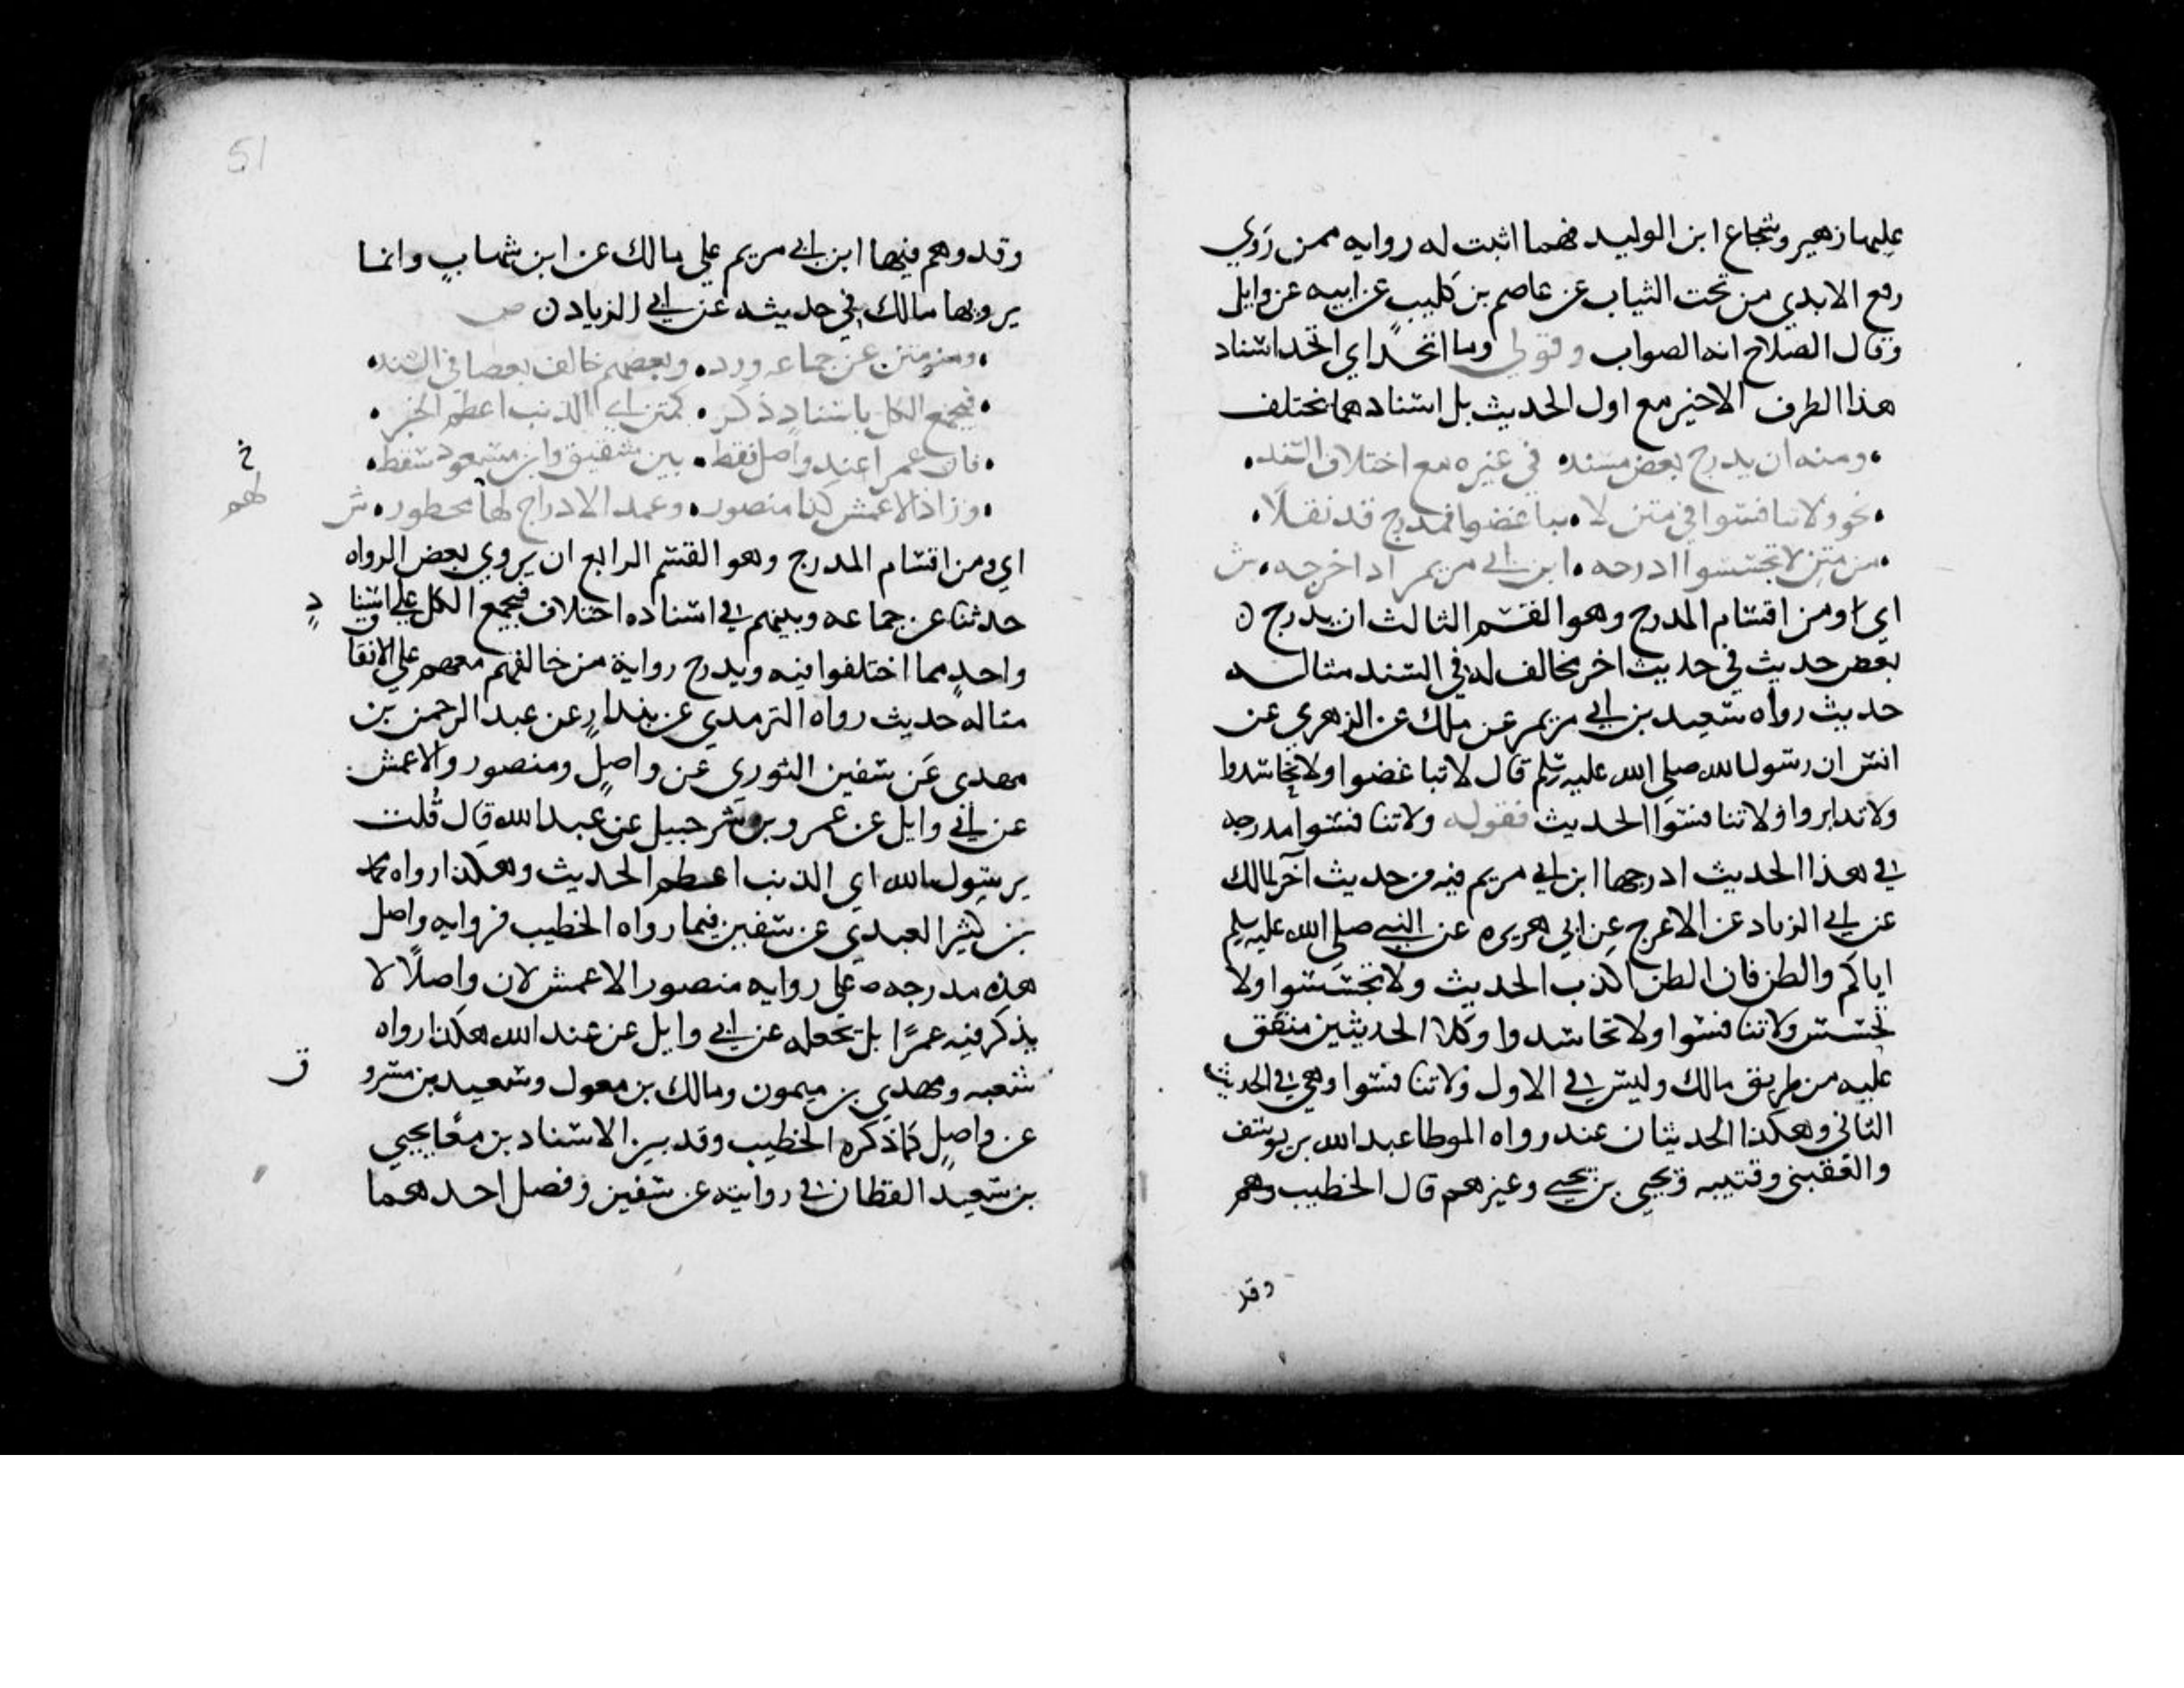 عليها زهير وشجاع ابن الوليد فهما اثبت له روايه ممن روي
رفع الايدي من تحت الثياب عن عاصم بن كليب عن ابيه عن وايل
وقال الصلاح انه الصواب وقولي وما اتحدا اي اتحد اسناد
هذا الطرف الاخير مع اول الحديث بل اسنادهما مختلف
ومنه ان يدرج بعض مسند في غيره مع اختلاف السند
نحو ولا تنافسوا في متن لا تباغضوا فمدرج قد نقلا
من متن لا تجسسوا ادرجه ابن ابي مريم اذ اخرجه ش
اي ومن اقسام المدرج وهو القسم الثالث ان يدرج
بعض حديث في حديث اخر مخالف له في السند مثاله
حديث رواه سعيد بن ابي مريم عن ملك عن الزهري عن
انس ان رسول الله صلي الله عليه وسلم قال لا تباغضوا ولا تحاسدوا
ولا تدابروا ولا تنافسوا الحديث فقوله ولا تنافسوا مدرجه
في هذا الحديث ادرجها ابن ابي مريم فيه من حديث آخر لمالك
عن ابي الزناد عن الاعرج عن ابي هريره عن النبي صلي الله عليه وسلم
اياكم والظن فان الظن اكذب الحديث ولا تجسسوا ولا
تحسسوا ولا تنافسوا ولا تحاسدوا وكلا الحديثين متفق
عليه من طريق مالك وليس في الاول ولا تنافسوا وهي في الحديث
الثاني وهكذا الحديثان عند رواه الموطا عبد الله بن يوسف
والقعنبي وقتيبه ويحيي بن يحيي وغيرهم قال الخطيب وهم
وقد
51
وقد وهم فيها ابن ابي مريم علي مالك عن ابن شهاب وانما
يرويها مالك في حديثه عن ابي الزناد ص
ومنه متن عن جماعه ورد وبعضهم خالف بعضا في السند
فيجمع الكل باسناد ذكر كمتن اي الذنب اعظم الخبر
فان عمرا عند واصل فقط بين شقيق وابن مسعود سقط
وزاد الاعمش كذا منصور وعمد الادراج لها محظور ش
اي ومن اقسام المدرج وهو القسم الرابع ان يروي بعض الرواه
حدثنا عن جماعه وبينهم في اسناده اختلاف فيجمع الكل علي اسناد
واحد مما اختلفوا فيه ويدرج رواية من خالفهم معهم علي الاتفا
مثاله حديث رواه الترمدي عن بندار عن عبد الرحمن بن
مهدي عن سفين الثوري عن واصل ومنصور والاعمش
عن ابي وايل عن عمرو بن شرحبيل عن عبد الله قال قلت
يرسول الله اي الذنب اعظم الحديث وهكذا رواه محمد
بن كثير العبدي عن سفين فيما رواه الخطيب فروايه واصل
هذه مدرجه علي روايه منصور الاعمش لان واصلا لا
يذكر فيه عمرًا بل تجعله عن ابي وايل عن عبد الله هكذا رواه
شعبه ومهدي بن ميمون ومالك بن مغول وسعيد بن مسرو
ق
عن واصل كما ذكره الخطيب وقد بين الاسنادين معًا يحيي
بن سعيد القطان في روايته عن سفين وفصل احدهما